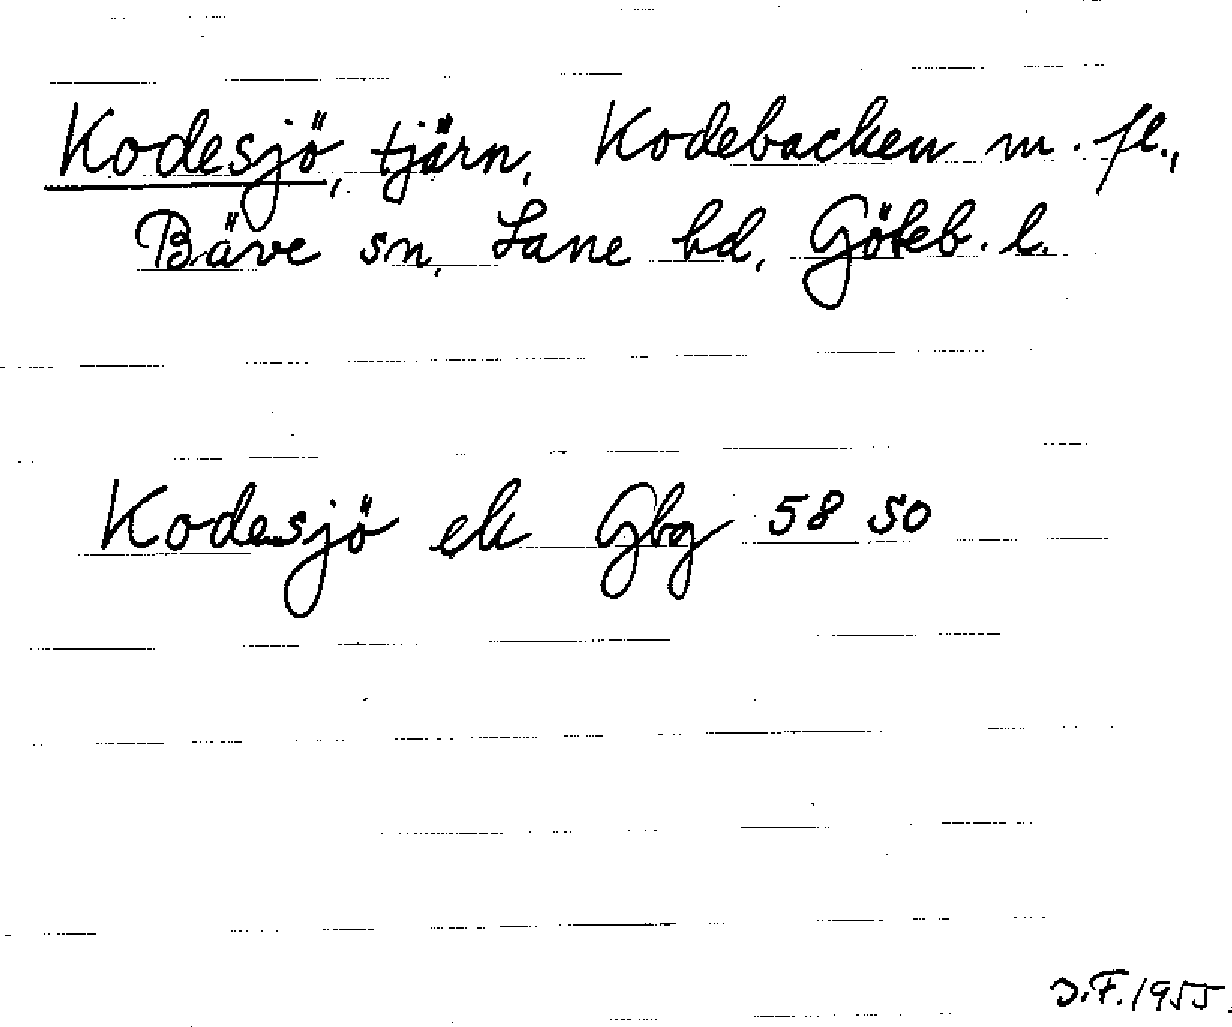 Kodesjö, tjärn, Kodebacken m. fl.,
Bäve sn, Lane hd, Göteb. l.
Kodesjö ek Gbg 58 50
J.F. 1955